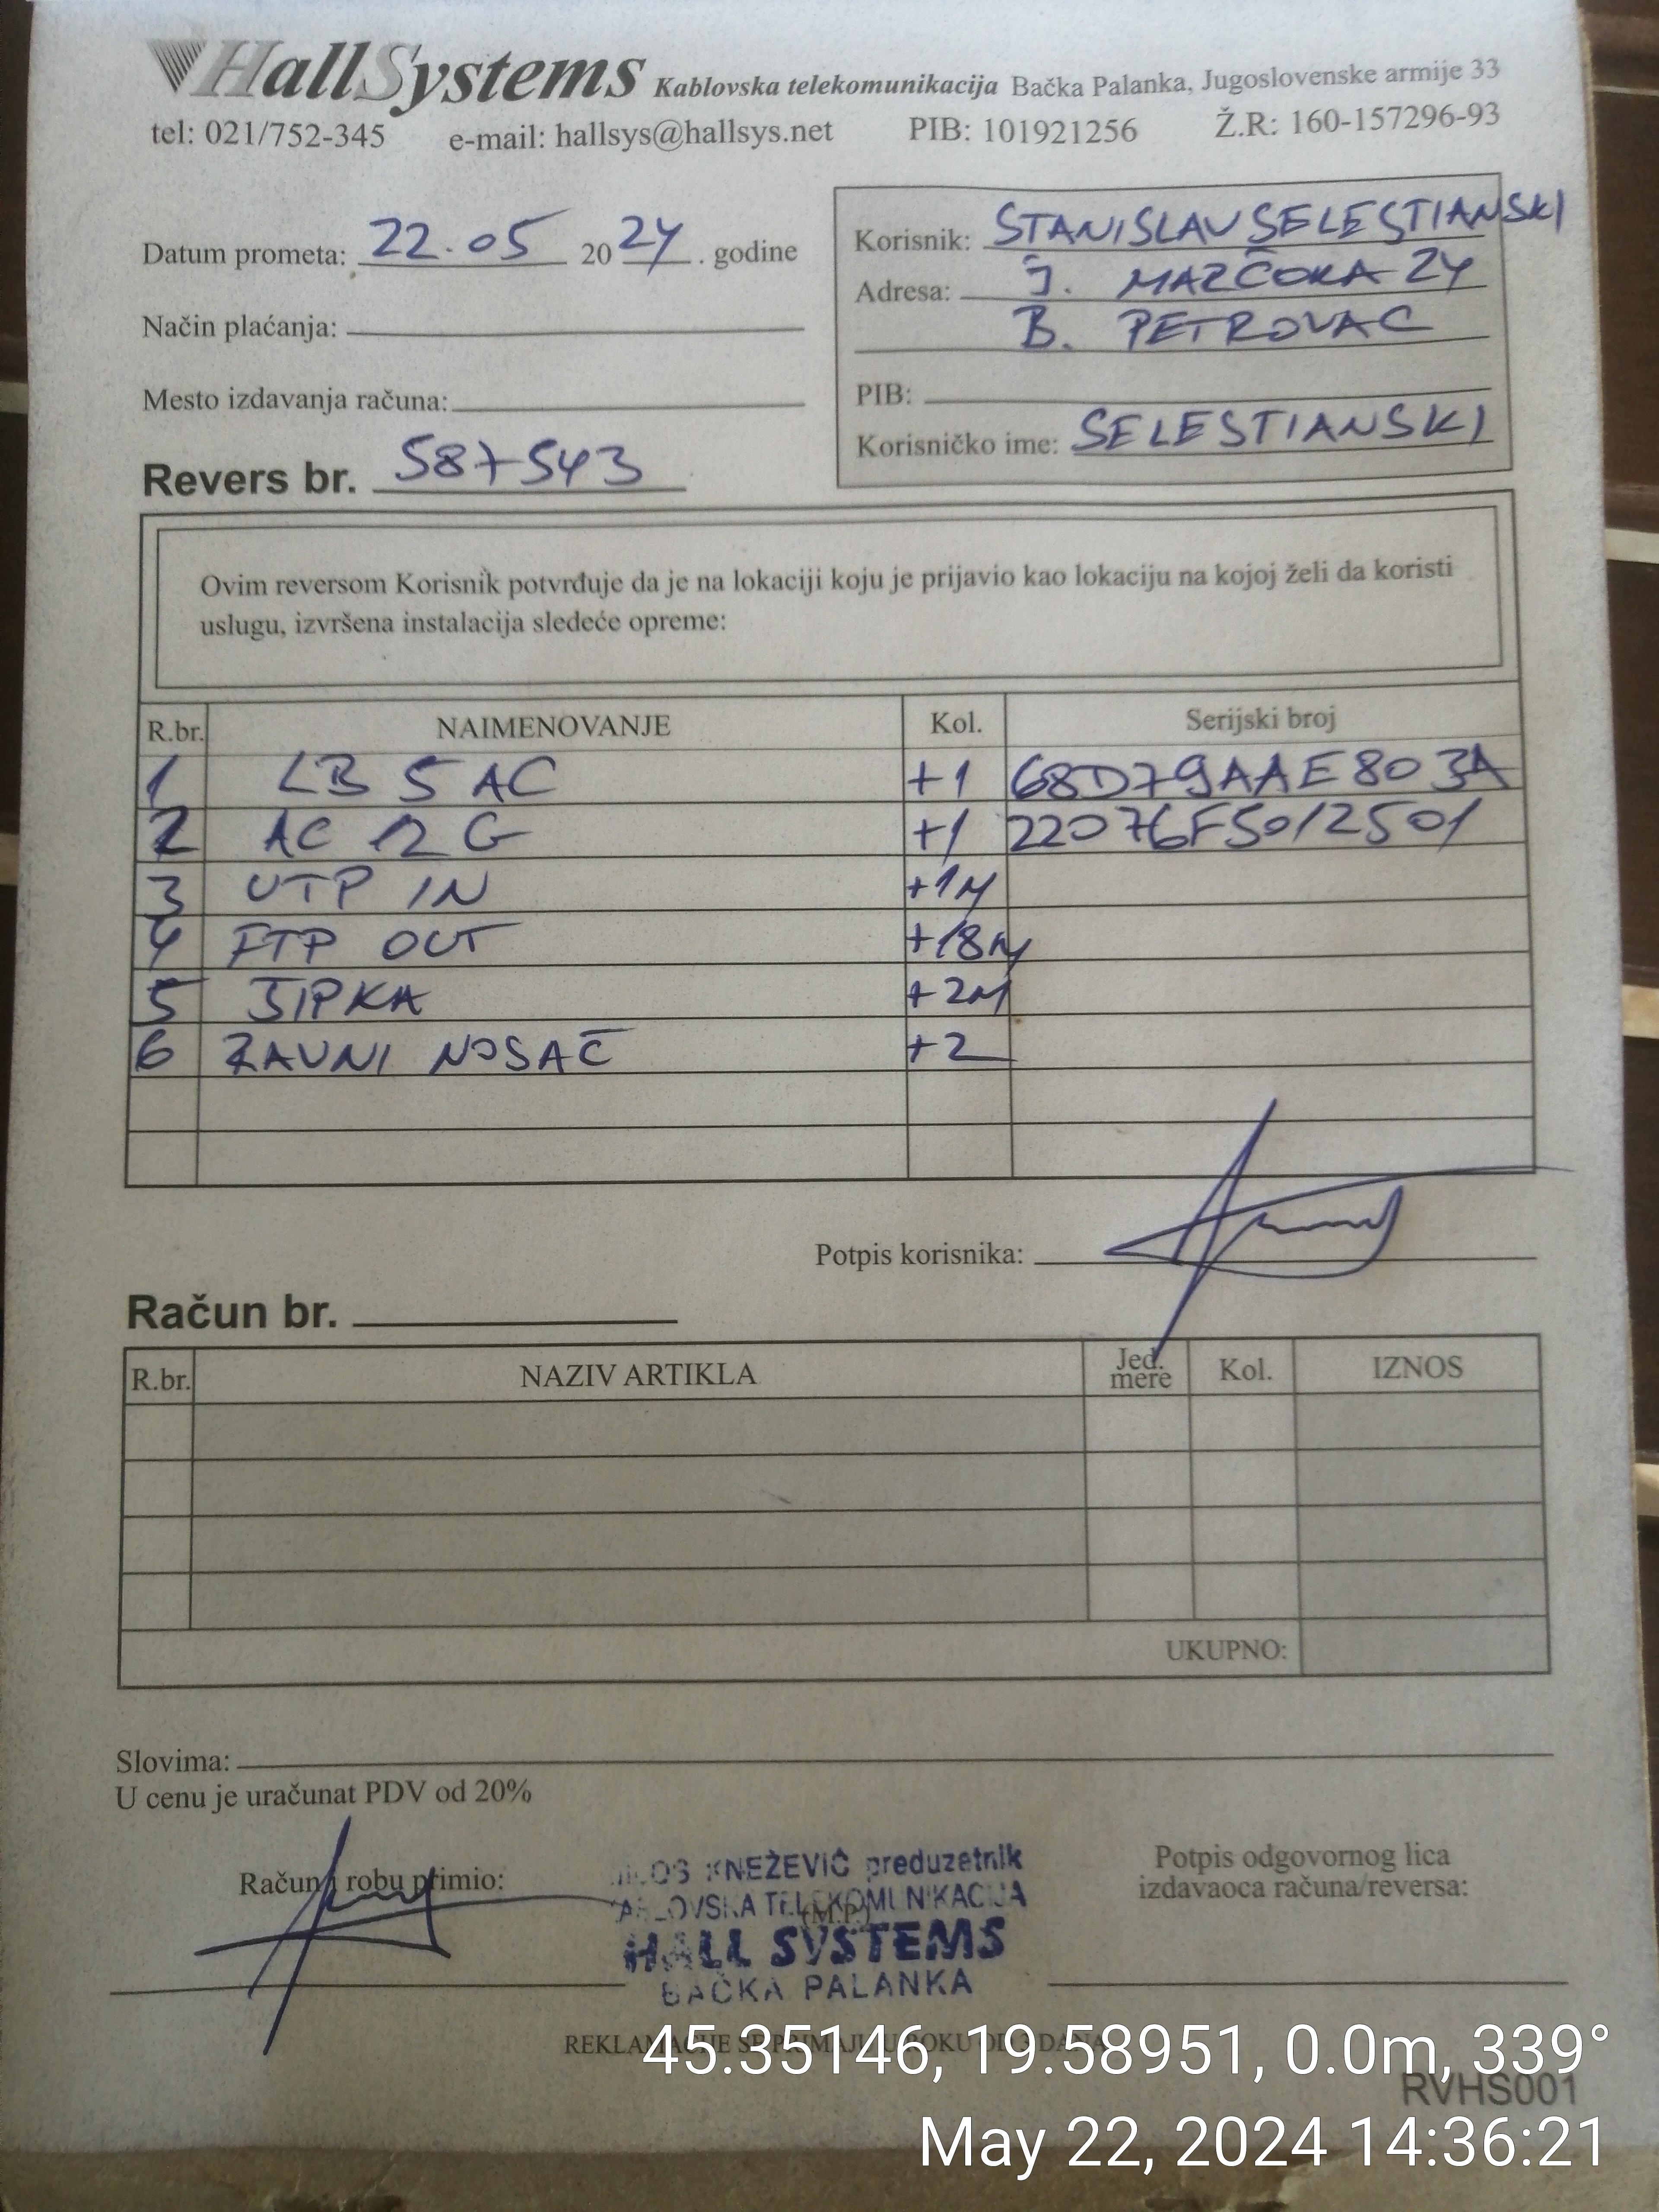 HallSystems Kablovska telekomunikacija Bačka Palanka, Jugoslovenske armije 33
tel: 021/752-345 e-mail: hallsys@hallsys.net PIB: 101921256 Ž.R: 160-157296-93
Datum prometa: 22.05 2024. godine
Način plaćanja:
Mesto izdavanja računa:
Revers br. 587543
Korisnik: STANISLAV SELEŠTIANSKI
Adresa: J. MARČOKA 24
B. PETROVAC
PIB:
Korisničko ime: SELESTIANSKI
Ovim reversom Korisnik potvrđuje da je na lokaciji koju je prijavio kao lokaciju na kojoj želi da koristi
uslugu, izvršena instalacija sledeće opreme:
R.br. NAIMENOVANJE Kol. Serijski broj
1 LB 5 AC +1 68D79AAE803A
2 AC 12 G +1 22076F5012501
3 UTP IN +1M
4 FTP OUT +18M
5 ŠIPKA +2M
6 RAVNI NOSAČ +2
Potpis korisnika:
Račun br.
R.br. NAZIV ARTIKLA Jed. mere Kol. IZNOS
UKUPNO:
Slovima:
U cenu je uračunat PDV od 20%
Račun i robu primio:
KNEŽEVIĆ preduzetnik
TELEKOMUNIKACIJA
(M.P.)
HALL SYSTEMS
BAČKA PALANKA
Potpis odgovornog lica
izdavaoca računa/reversa:
REKLAMACIJE SE PRIMAJU U ROKU OD DANA
45.35146, 19.58951, 0.0m, 339°
RVHS001
May 22, 2024 14:36:21